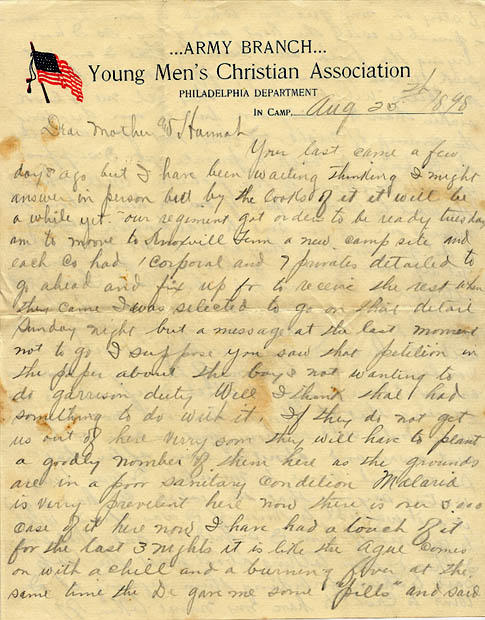 ...ARMY BRANCH...
Young Men's Christian Association
PHILADELPHIA DEPARTMENT
IN CAMP, Aug 25th 1898
Dear Mother & Hannah
Your last came a few
days ago but I have been waiting thinking I might
answer in person but by the looks of it it will be
a while yet. our regiment got orders to be ready tuesday
am to moove to Knoxvill Tenn a new camp site and
each Co had 1 corporal and 7 privates detailed to
go ahead and fix up for to receive the rest when
they came I was selected to go on that detail
Sunday night but a message at the last moment
not to go I suppose you saw that petition in
the paper about the boys not wanting to
do garrison duty Well I think that had
something to do with it. If they do not get
us out of here verry soon they will have to plant
a goodly nomber of them here as the grounds
are in a poor sanitary condetion Malaria
is verry prevelent here now there is over 3,000
case of it here now I have had a touch of it
for the last 3 nights it is like the Ague comes
on with a chill and a burning fever at the
same time the Dr gave me some "pills" and said